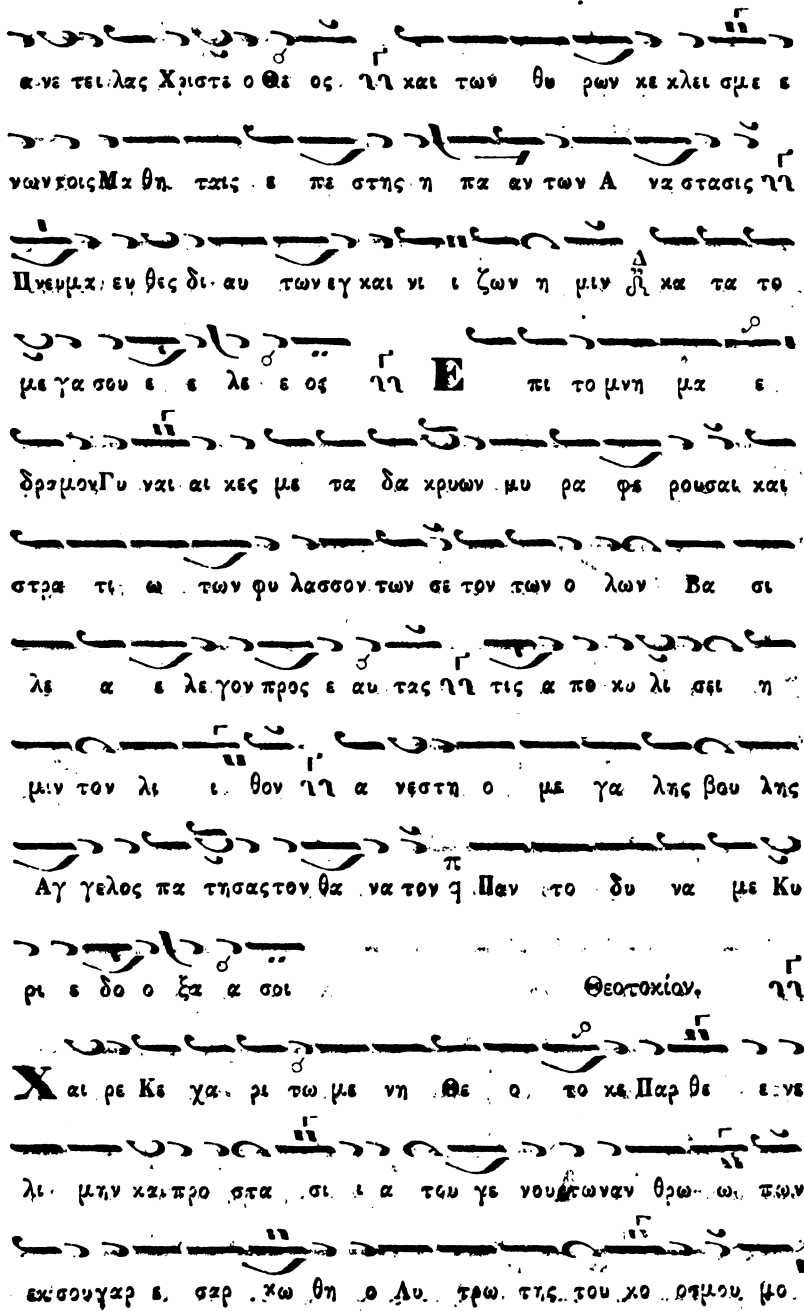 α νε τει λας Χριστε ο Θε ος και των θυ ρων κε κλει σμε ε
νων τοις Μα θη ταις ε πε στης η πα αν των Α να στασις
Πνευμα ευ θες δι αυ των εγ και νι ι ζων η μιν Δ κα τα το
με γα σου ε ε λε ε ος Ε πι το μνη μα ε
δραμον Γυ ναι αι κες με τα δα κρυων μυ ρα φε ρουσαι και
στρα τι ω των φυ λασσον των σε τον των ο λων Βα σι
λε α ε λε γον προς ε αυ τας τις α πο κυ λι σει η
μιν τον λι ι θον α νεστη ο με γα λης βου λης
Αγ γελος πα τησας τον θα να τον π q Παν το δυ να με Κυ
ρι ε δο ο ξα α σοι Θεοτοκίον.
Χ αι ρε Κε χα ρι τω με νη Θε ο το κε Παρ θε ε νε
λι μην και προ στα σι ι α του γε νους των αν θρω ω πων
εκ σου γαρ ε σαρ κω θη ο Λυ τρω της του κο οσμου μο